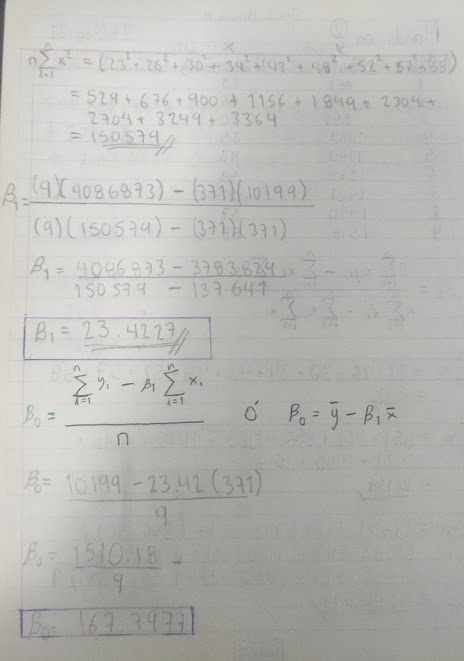 n∑ᵢ₌₁ⁿ x² = (23² + 26² + 30² + 34² + 43² + 48² + 52² + 57² + 58²)
= 529 + 676 + 900 + 1156 + 1849 + 2304 +
2704 + 3249 + 3364
= 150579
β₁ = (9)(4086873) − (371)(10199)
(9)(150579) − (371)(371)
β₁ = 4086873 − 3783829
150579 − 137641
β₁ = 23.4227
β₀ = ∑ᵢ₌₁ⁿ yᵢ − β₁ ∑ᵢ₌₁ⁿ xᵢ ó β₀ = ȳ − β₁x̄
n
β₀ = 10199 − 23.42 (371)
9
β₀ = 1510.18
9
β₀ = 167.7977